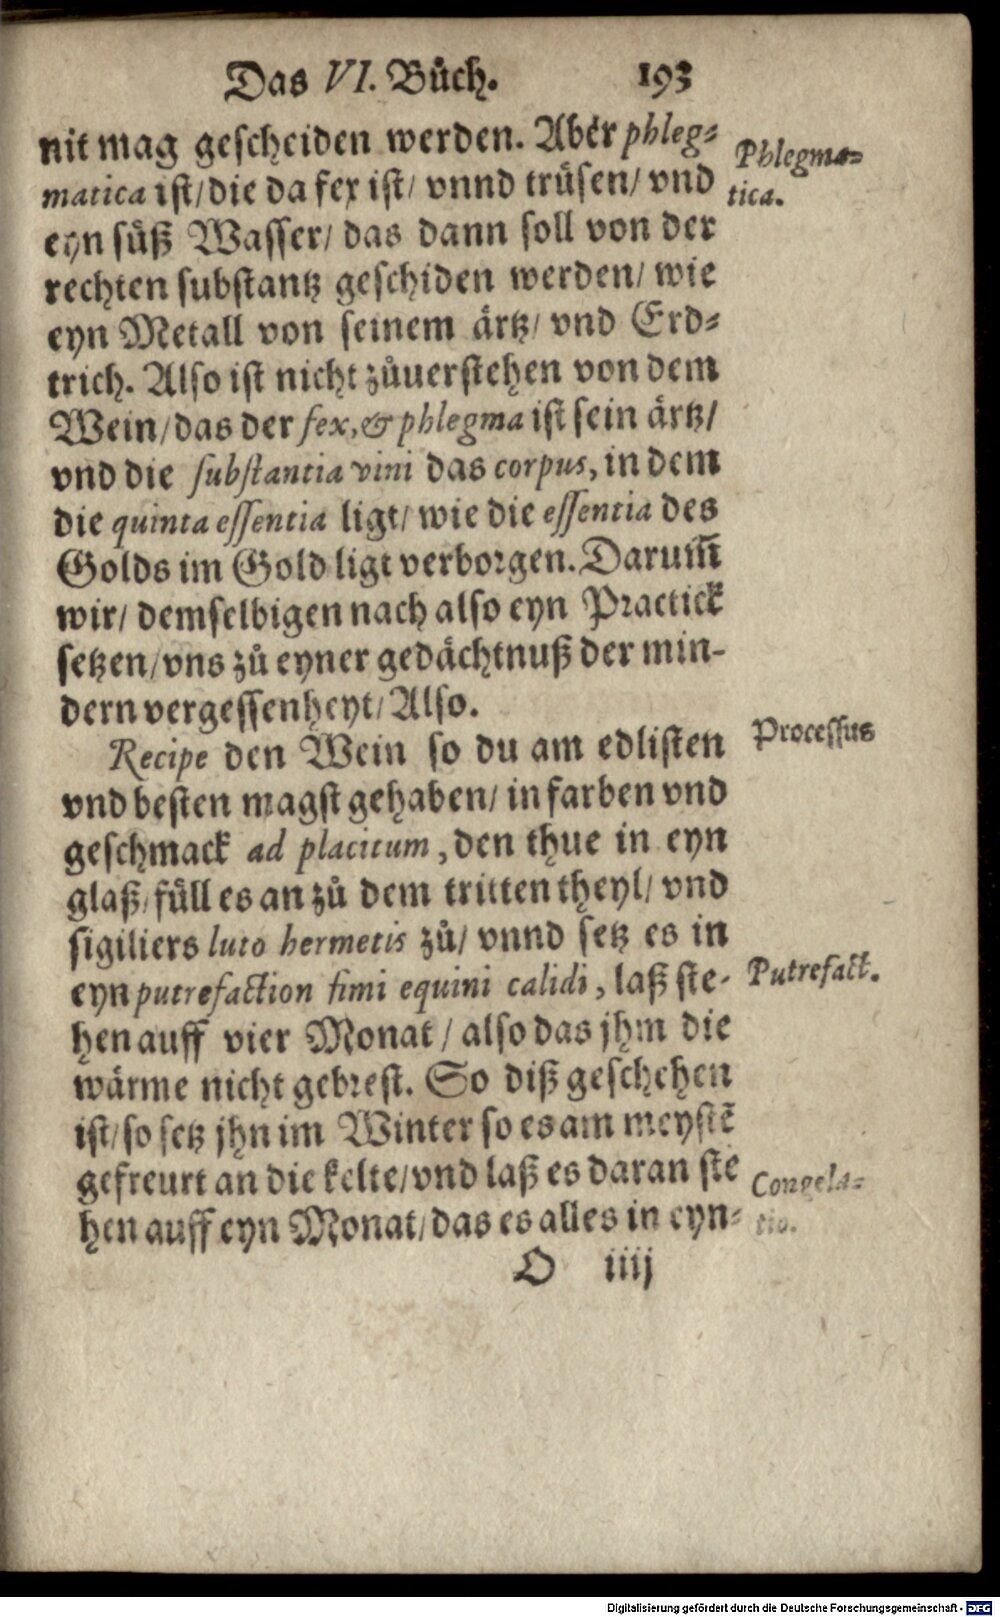 Das VI. Bůch. 193
nit mag gescheiden werden. Aber phleg⸗
matica ist/ die da fex ist/ vnnd trüsen/ vnd
eyn süß Wasser/ das dann soll von der
rechten substantz geschiden werden/ wie
eyn Metall von seinem ärtz/ vnd Erd⸗
trich. Also ist nicht zůuerstehen von dem
Wein/ das der fex, & phlegma ist sein ärtz/
vnd die substantia vini das corpus, in dem
die quinta essentia ligt/ wie die essentia des
Golds im Gold ligt verborgen. Darum̃
wir/ demselbigen nach also eyn Practick
setzen/ vns zů eyner gedächtnuß der min-
dern vergessenheyt/ Also.
Recipe den Wein so du am edlisten
vnd besten magst gehaben/ in farben vnd
geschmack ad placitum, den thue in eyn
glaß/ füll es an zů dem tritten theyl/ vnd
sigiliers luto hermetis zů/ vnnd setz es in
eyn putrefaction fimi equini calidi, laß ste-
hen auff vier Monat/ also das jhm die
wärme nicht gebrest. So diß geschehen
ist/ so setz jhn im Winter so es am meystẽ
gefreurt an die kelte/ vnd laß es daran ste
hen auff eyn Monat/ das es alles in eyn⸗
O iiij
Phlegma⸗
tica.
Processus
Putrefact.
Congela⸗
tio.
Digitalisierung gefördert durch die Deutsche Forschungsgemeinschaft - DFG